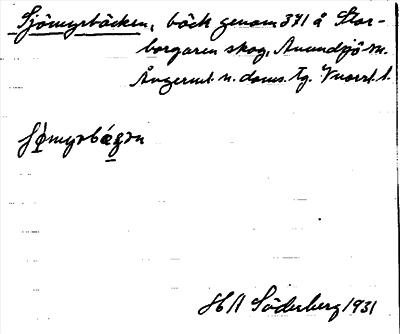 Sjömyrbäcken, bäck genom 391 å Stor-
borgaren skog, Anundsjö sn.
Ångerml. n. doms. tg. Vnorrl. l.
Sjömyrbäcken
HA Söderberg 1931